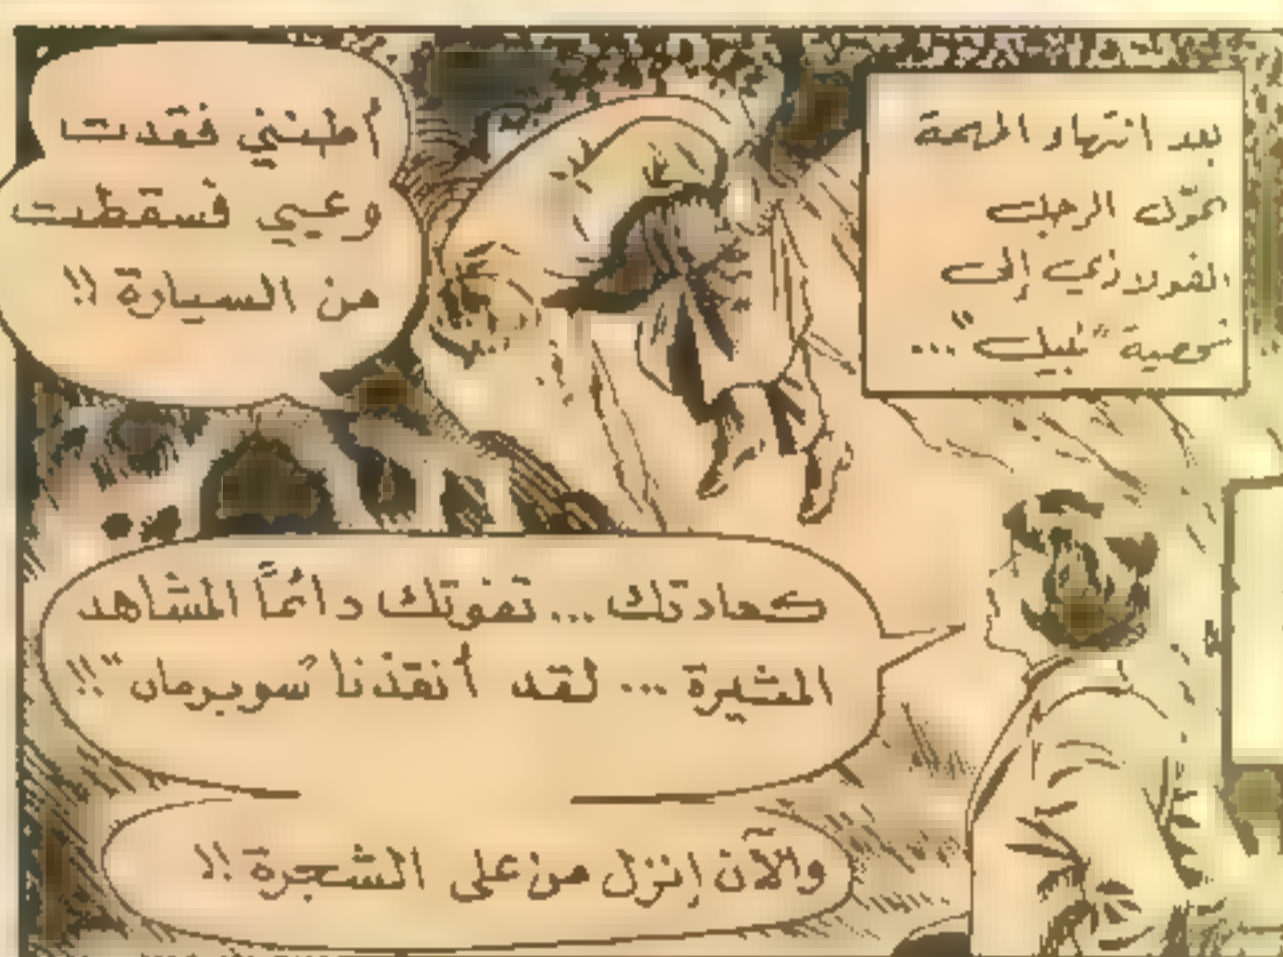 بعد انتهاء المهمة
تحوّل الرجل
الفولاذي إلى
شخصية "نبيل"...
أظنني فقدت
وعيي فسقطت
من السيارة !!
كعادتك ... تفوتك دائمًا المشاهد
المثيرة ... لقد أنقذنا "سوبرمان" !!
والآن إنزل من على الشجرة !!